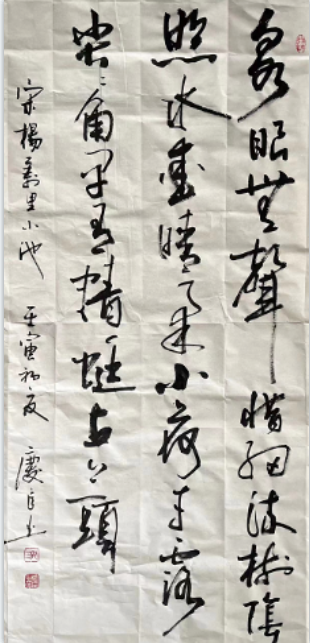 泉眼無聲惜細流樹陰
照水愛晴柔小荷才露
尖〻角早有蜻蜓立上頭
宋楊萬里小池 壬寅初夏 慶书